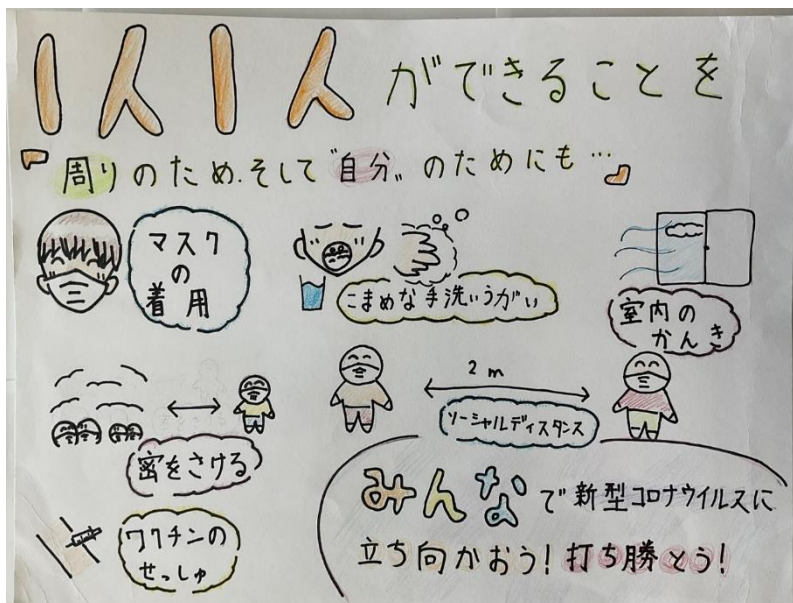 1人1人ができることを
『周りのため、そして"自分"のためにも…』
マスク
の
着用
こまめな手洗いうがい
室内の
かんき
密をさける
2m
ソーシャルディスタンス
ワクチンの
せっしゅ
みんなで新型コロナウイルスに
立ち向かおう！打ち勝とう！